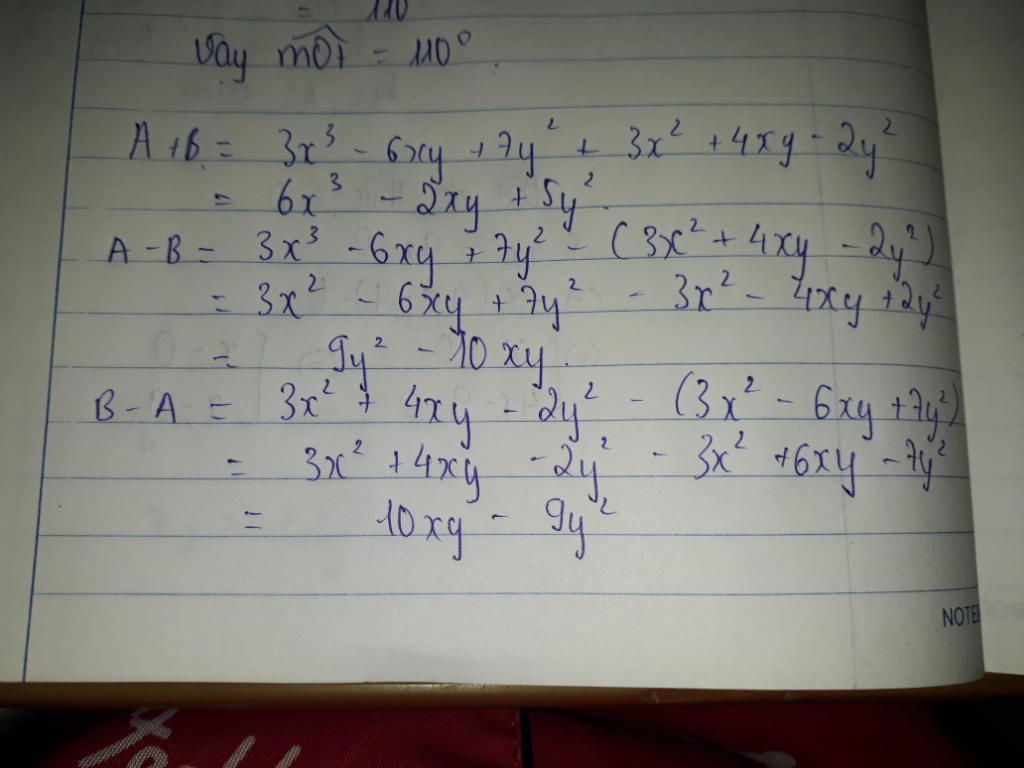 = 110
Vậy mOt = 110°.
A + B = 3x³ - 6xy + 7y² + 3x² + 4xy - 2y²
= 6x³ - 2xy + 5y².
A - B = 3x³ - 6xy + 7y² - (3x² + 4xy - 2y²)
= 3x² - 6xy + 7y² - 3x² - 4xy + 2y²
= 9y² - 10xy.
B - A = 3x² + 4xy - 2y² - (3x² - 6xy + 7y²)
= 3x² + 4xy - 2y² - 3x² + 6xy - 7y²
= 10xy - 9y²